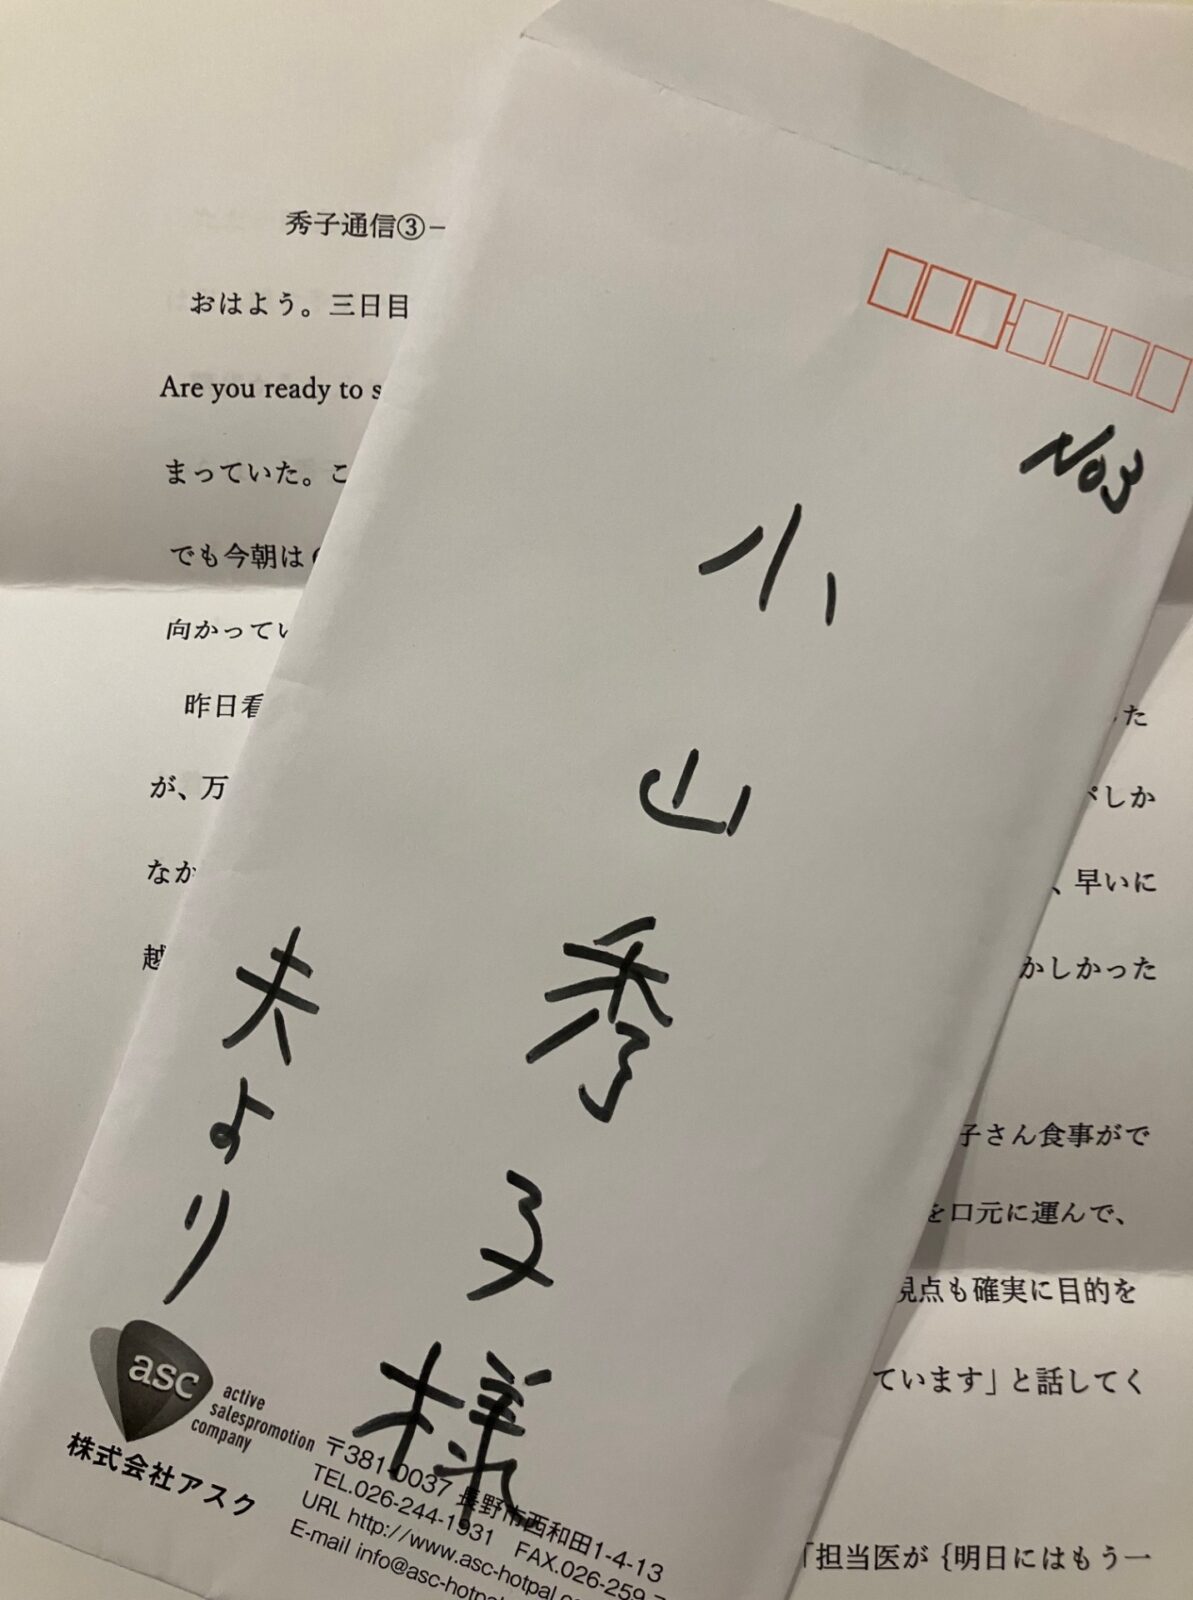 秀子通信③－
おはよう。三日目
Are you ready to s
まっていた。こ
でも今朝は
向かってい
昨日看
が、万
なか
越
した
しか
、早いに
かしかった
子さん食事がで
を口元に運んで、
視点も確実に目的を
ています」と話してく
「担当医が {明日にはもう一
No3
小山秀子様
夫より
asc
active
salespromotion
company
株式会社アスク
〒381-0037 長野市西和田1-4-13
TEL.026-244-1931 FAX.026-259-7
URL http://www.asc-hotpal.co
E-mail info@asc-hotpal